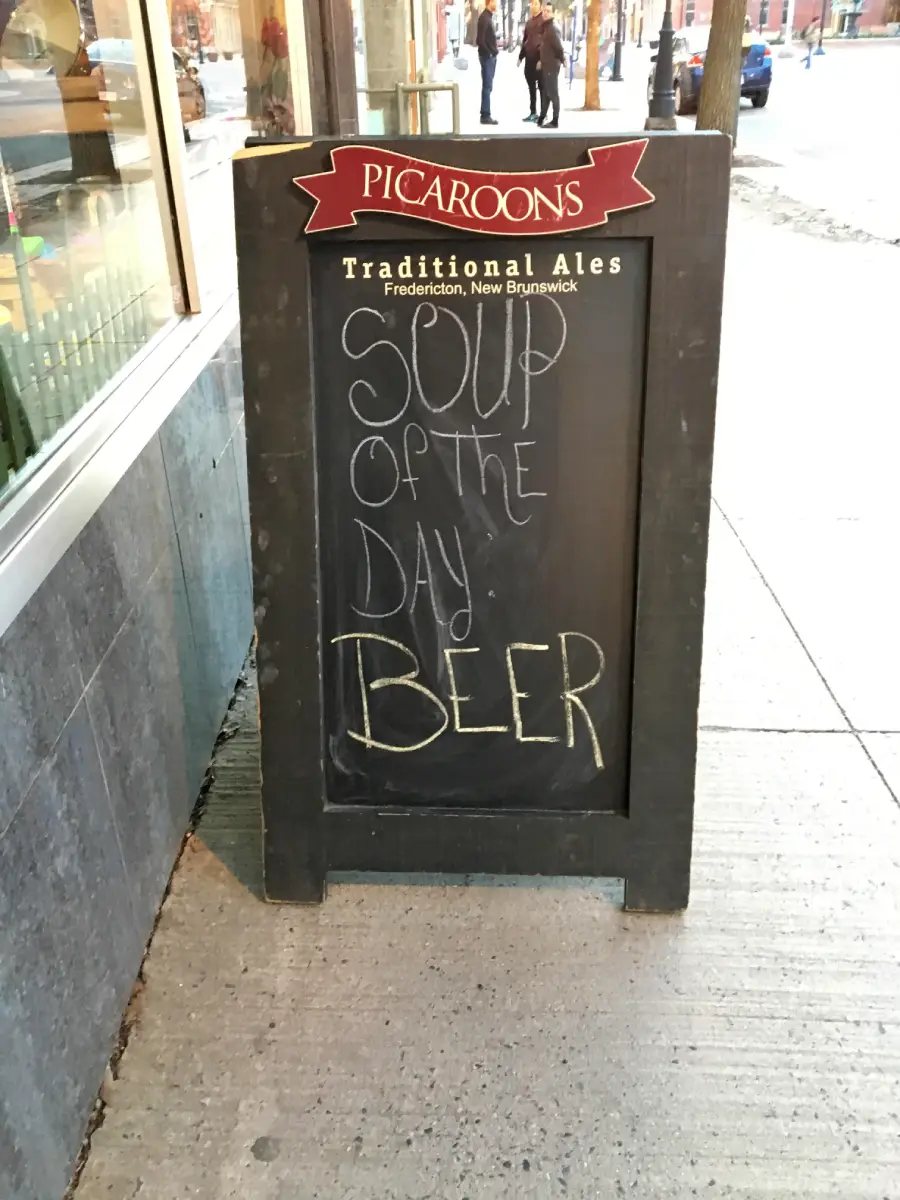 PICAROONS
Traditional Ales
Fredericton, New Brunswick
SOUP
Of ThE
DAY:
BEER